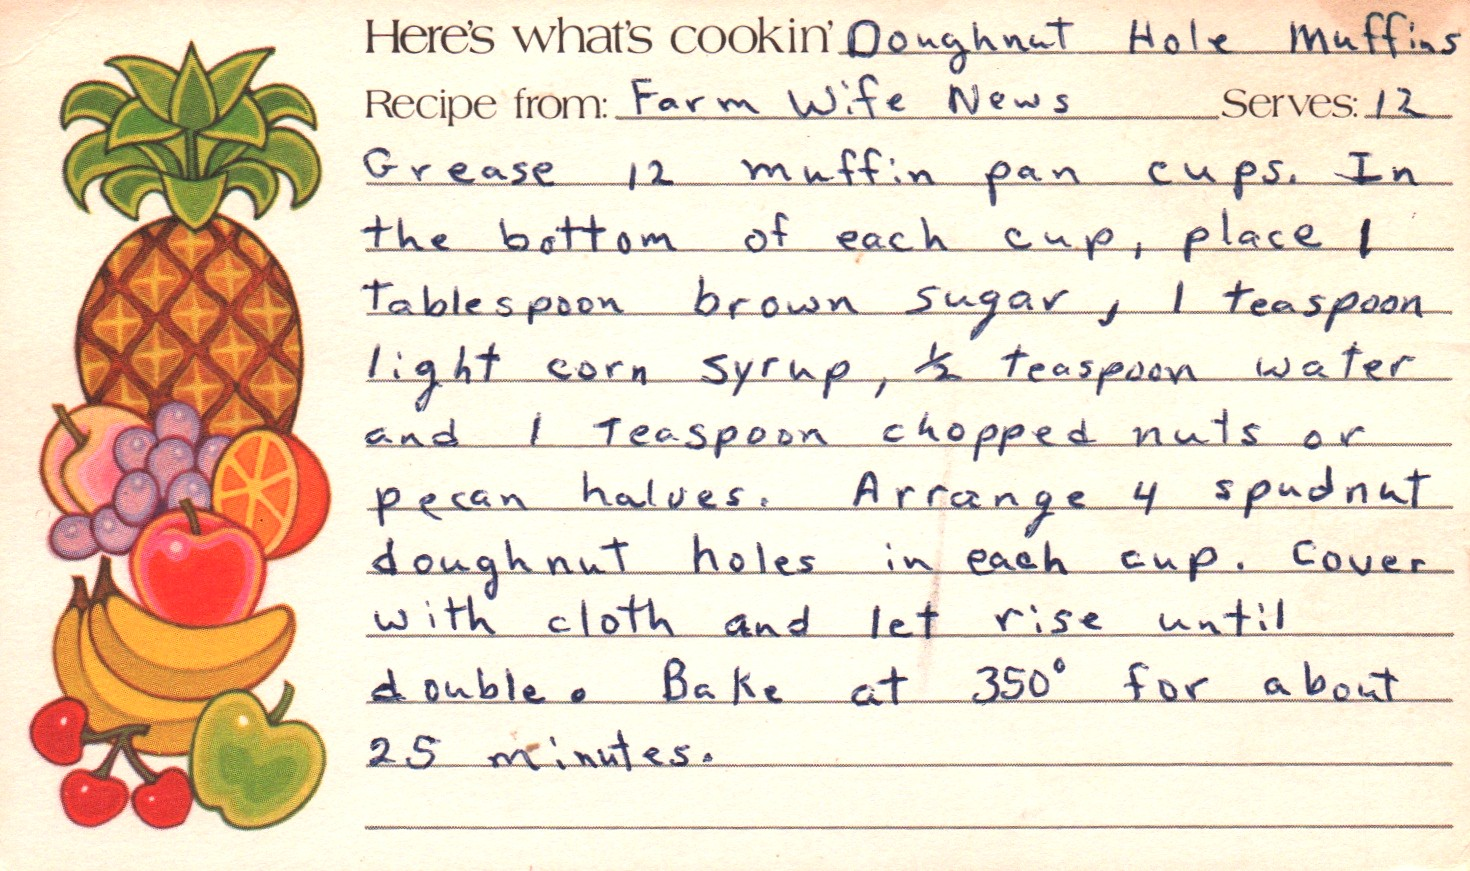 Here's what's cookin' Doughnut Hole Muffins
Recipe from: Farm Wife News Serves: 12
Grease 12 muffin pan cups. In
the bottom of each cup, place 1
Tablespoon brown sugar, 1 teaspoon
light corn syrup, ½ teaspoon water
and 1 Teaspoon chopped nuts or
pecan halves. Arrange 4 spudnut
doughnut holes in each cup. Cover
with cloth and let rise until
double. Bake at 350° for about
25 minutes.